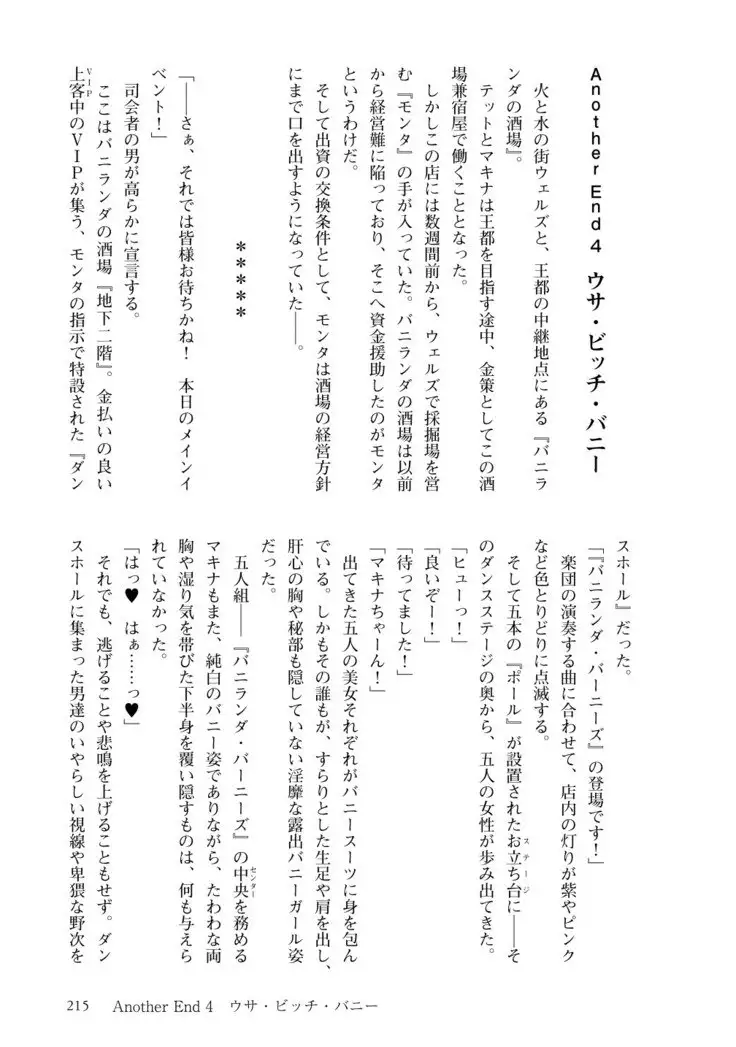 Another End 4　ウサ・ビッチ・バニー
　火と水の街ウェルズと、王都の中継地点にある『バニラ
ンダの酒場』。
　テットとマキナは王都を目指す途中、金策としてこの酒
場兼宿屋で働くこととなった。
　しかしこの店には数週間前から、ウェルズで採掘場を営
む『モンタ』の手が入っていた。バニランダの酒場は以前
から経営難に陥っており、そこへ資金援助したのがモンタ
というわけだ。
　そして出資の交換条件として、モンタは酒場の経営方針
にまで口を出すようになっていた――。
＊＊＊＊＊
「――さぁ、それでは皆様お待ちかね！　本日のメインイ
ベント！」
　司会者の男が高らかに宣言する。
　ここはバニランダの酒場『地下二階』。金払いの良い
上客中のＶＩＰが集う、モンタの指示で特設された『ダン
VIP
スホール』だった。
「『バニランダ・バーニーズ』の登場です！」
　楽団の演奏する曲に合わせて、店内の灯りが紫やピンク
など色とりどりに点滅する。
　そして五本の『ポール』が設置されたお立ち台に――そ
ステージ
のダンスステージの奥から、五人の女性が歩み出てきた。
「ヒューっ！」
「良いぞー！」
「待ってました！」
「マキナちゃーん！」
　出てきた五人の美女それぞれがバニースーツに身を包ん
でいる。しかもその誰もが、すらりとした生足や肩を出し、
肝心の胸や秘部も隠していない淫靡な露出バニーガール姿
だった。
　五人組――『バニランダ・バーニーズ』の中央を務める
センター
マキナもまた、純白のバニー姿でありながら、たわわな両
胸や湿り気を帯びた下半身を覆い隠すものは、何も与えら
れていなかった。
「はっ♥　はぁ……っ♥」
　それでも、逃げることや悲鳴を上げることもせず。ダン
スホールに集まった男達のいやらしい視線や卑猥な野次を
215　Another End 4　ウサ・ビッチ・バニー